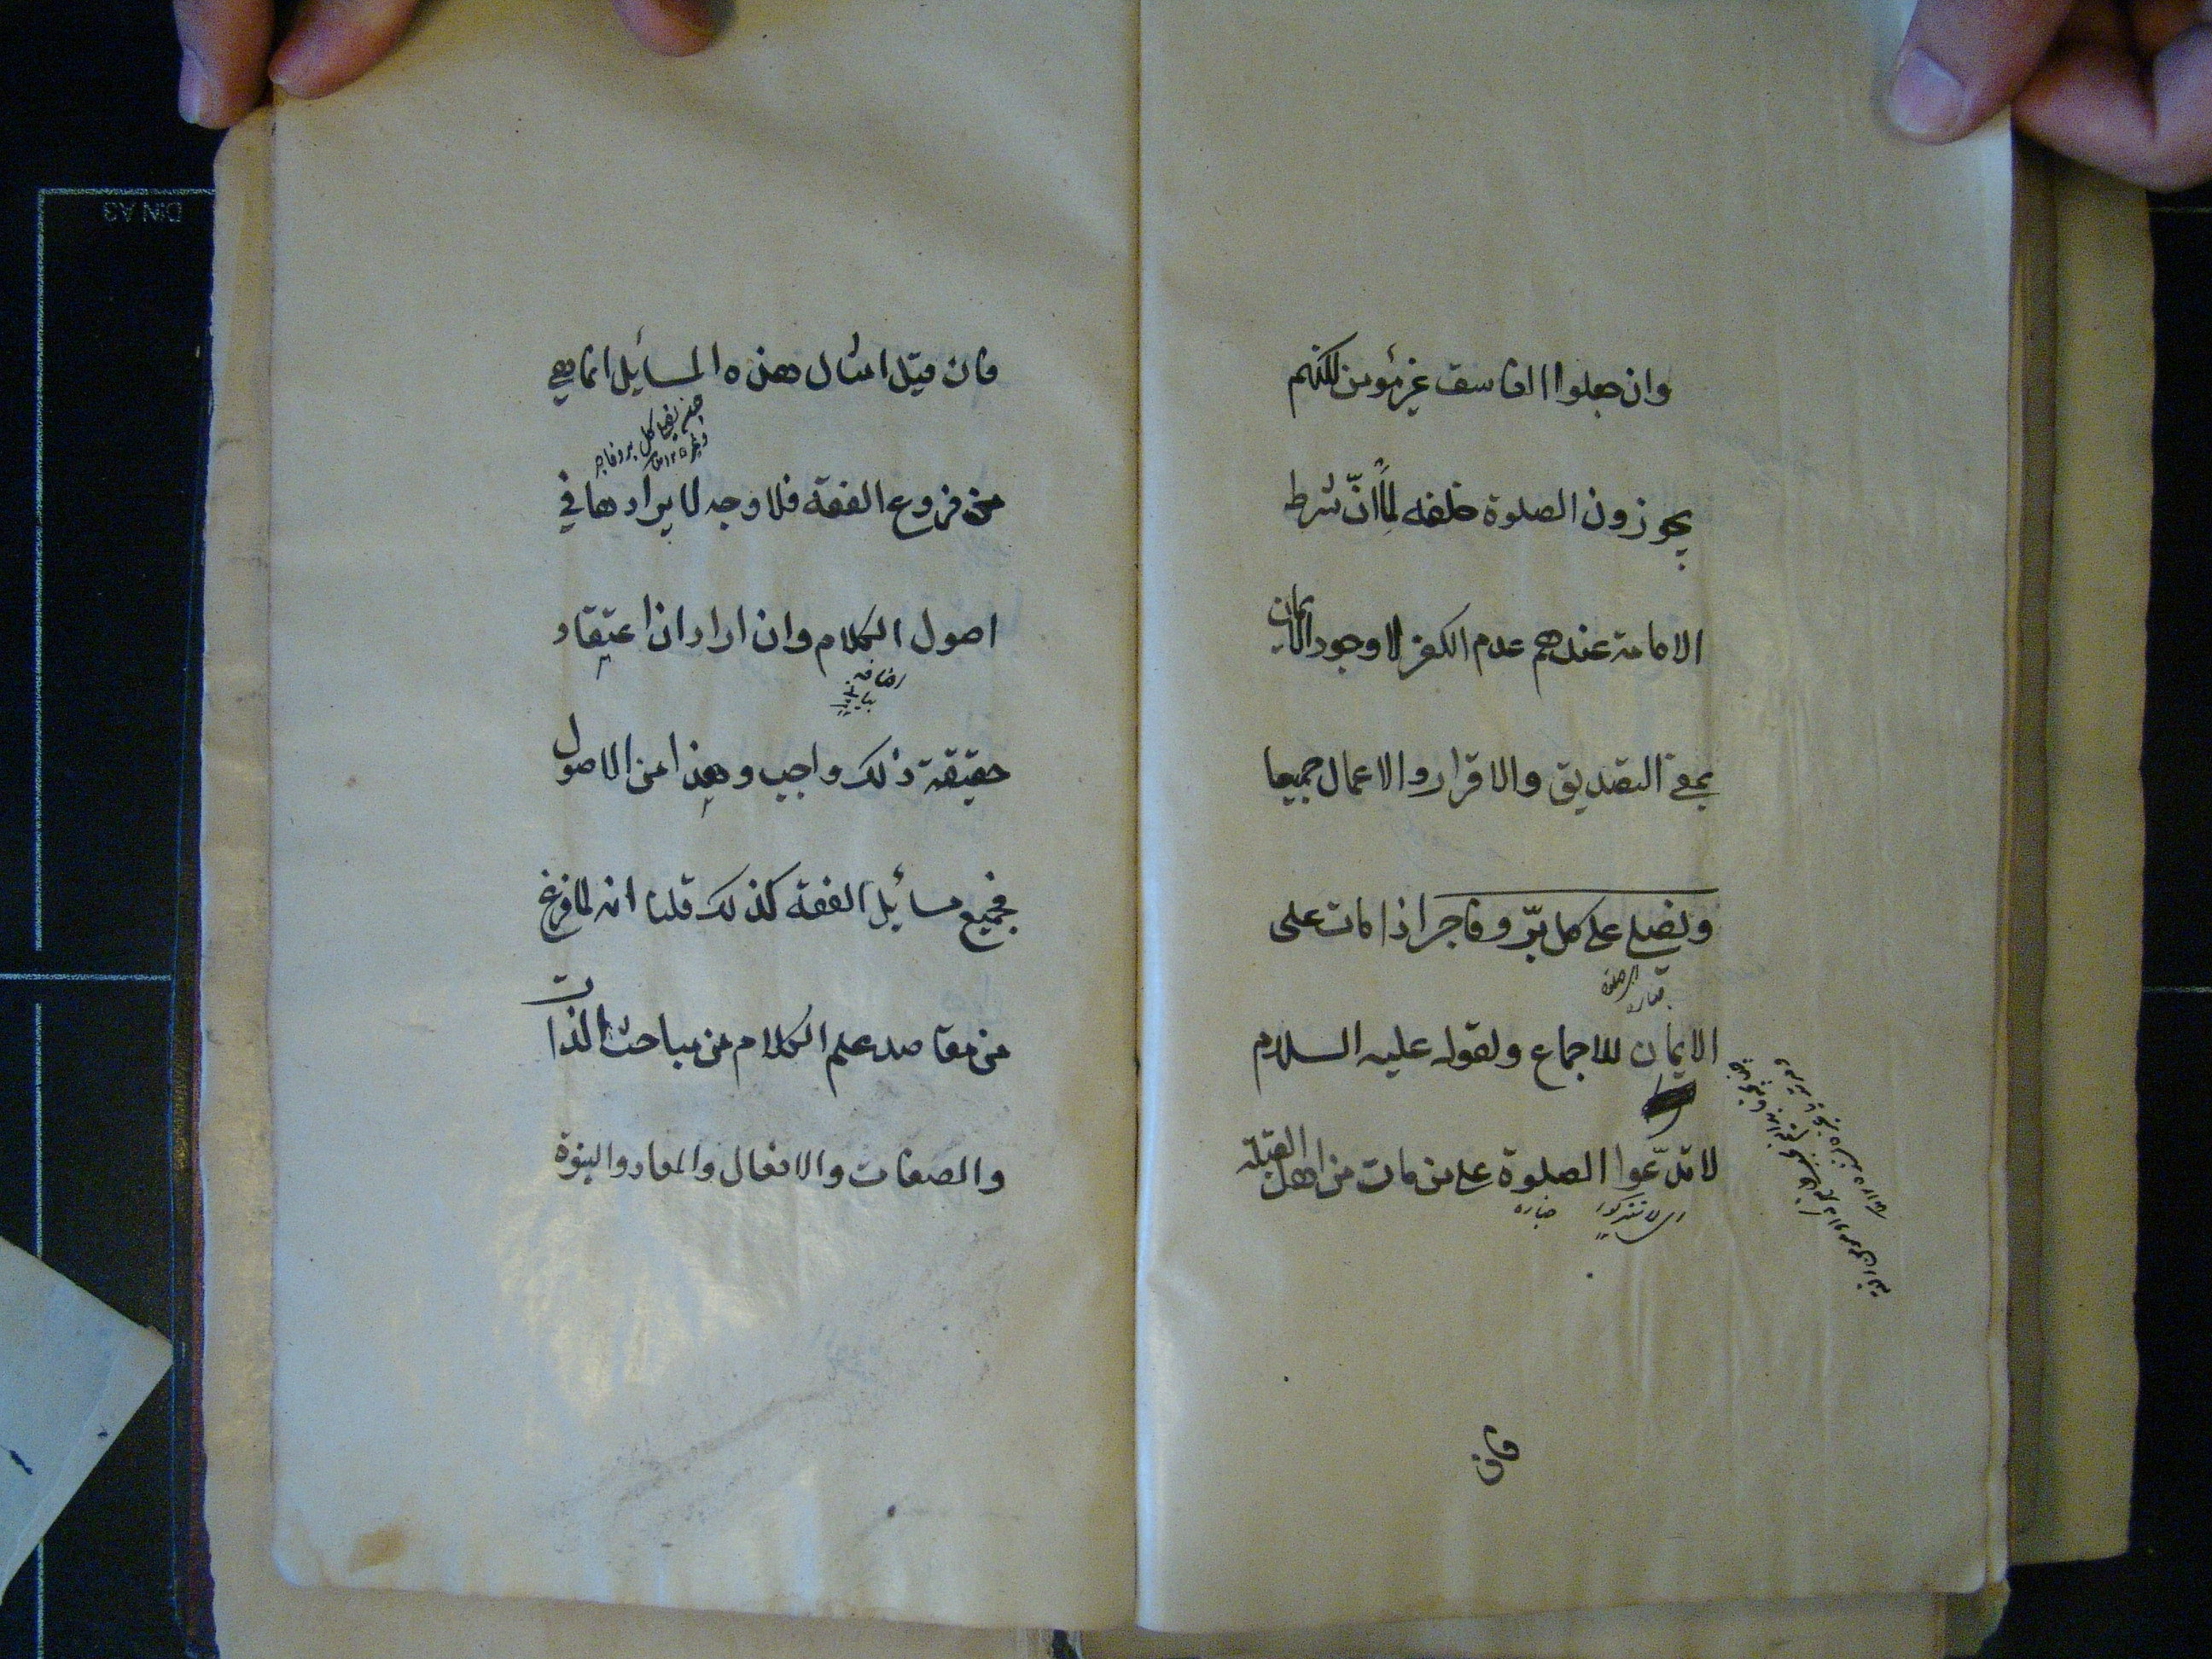 وان جعلوا الفاسق غير مؤمن لكنهم
يجوزون الصلوة خلفه لما ان شرط
الامامة عندهم عدم الكفر لا وجود الايمان
بمعنى التصديق والاقرار والاعمال جميعا
ويصلى على كل برّ وفاجر اذا مات على
الايمان للاجماع ولقوله عليه السلام
لا تدعوا الصلوة على من مات من اهل القبلة
جنازه
فان
فان قيل امثال هذه المسائل انما هي
من فروع الفقه فلا وجه لايرادها في
اصول الكلام وان اراد ان اعتقاد
حقيقة ذلك واجب وهذا من الاصول
فجميع مسائل الفقه كذلك قلنا انه لما فرغ
من مقاصد علم الكلام من مباحث الذات
والصفات والافعال والمعاد والنبوة
DIN A3